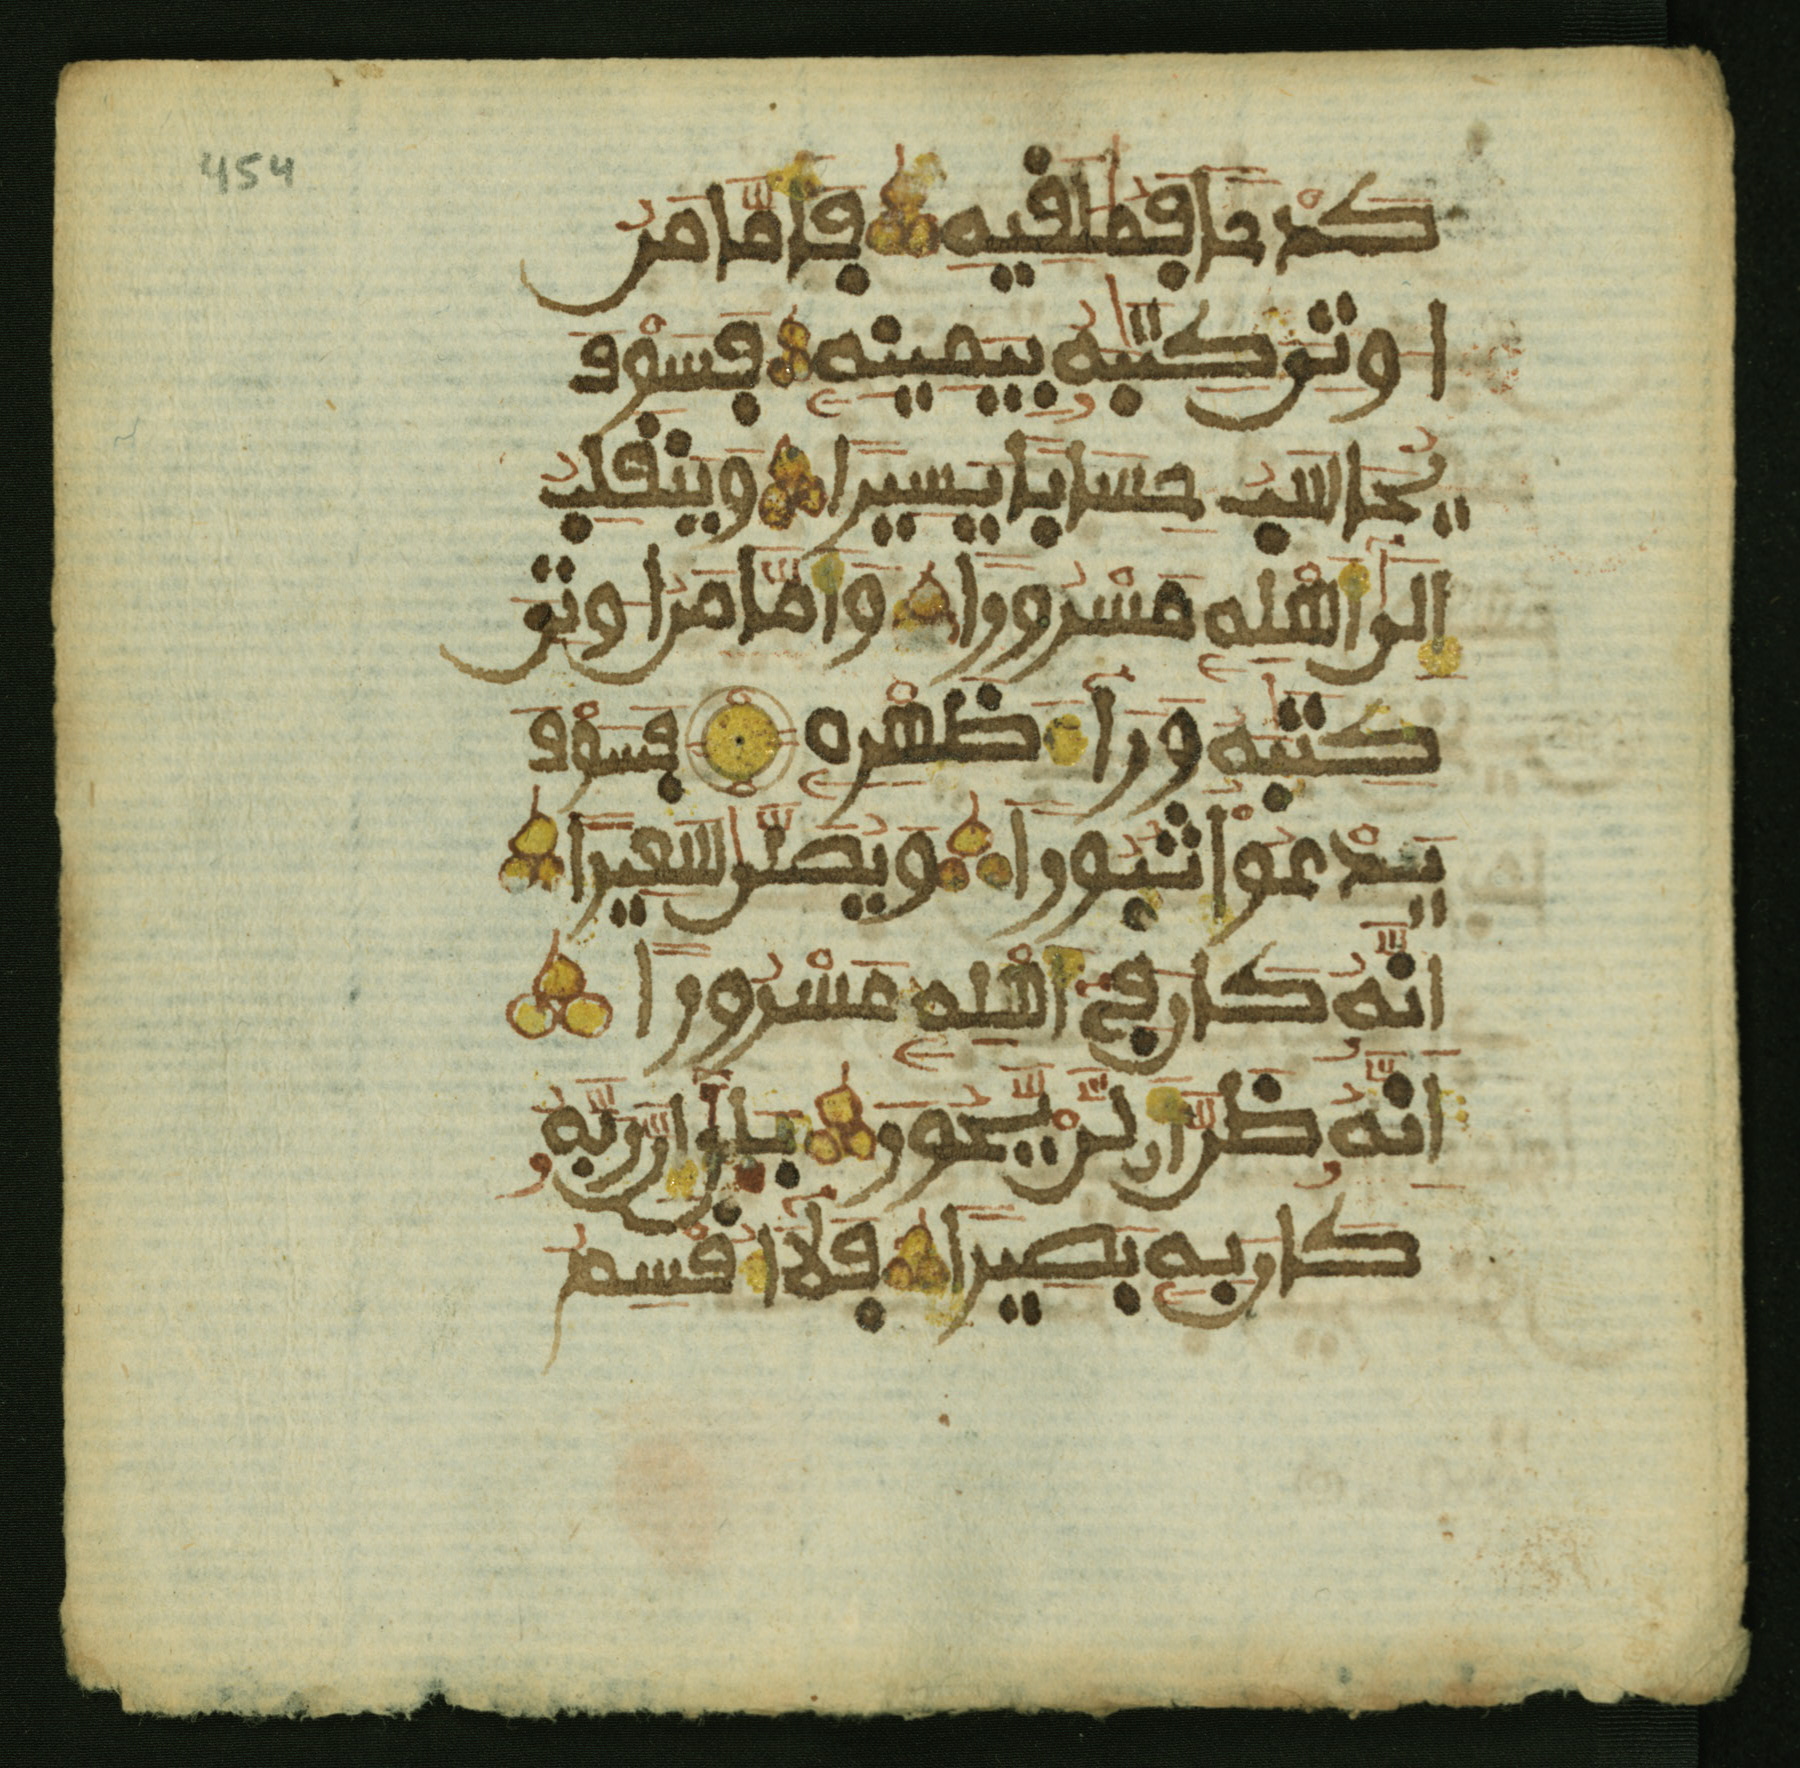 454
كَدْحًا فَمُلَٰقِيهِ فَأَمَّا مَنُ
ا۟وتِيَ كِتَٰبَهُۥ بِيَمِينِهِۦ فَسَوْفَ
يُحَاسَبُ حِسَابًا يَسِيرًا وَيَنقَلِبُ
إِلَىٰٓ أَهْلِهِۦ مَسْرُورًا وَأَمَّا مَنُ ا۟وتِيَ
كِتَٰبَهُۥ وَرَآءَ ظَهْرِهِۦ فَسَوْفَ
يَدْعُوا۟ ثُبُورًا وَيُصَلَّىٰ سَعِيرًا
إِنَّهُۥ كَانَ فِىٓ أَهْلِهِۦ مَسْرُورًا
إِنَّهُۥ ظَنَّ أَن لَّنْ يَّحُورَ بَلَىٰٓ إِنَّ رَبَّهُۥ
كَانَ بِهِۦ بَصِيرًا فَلَآ أُقْسِمُ